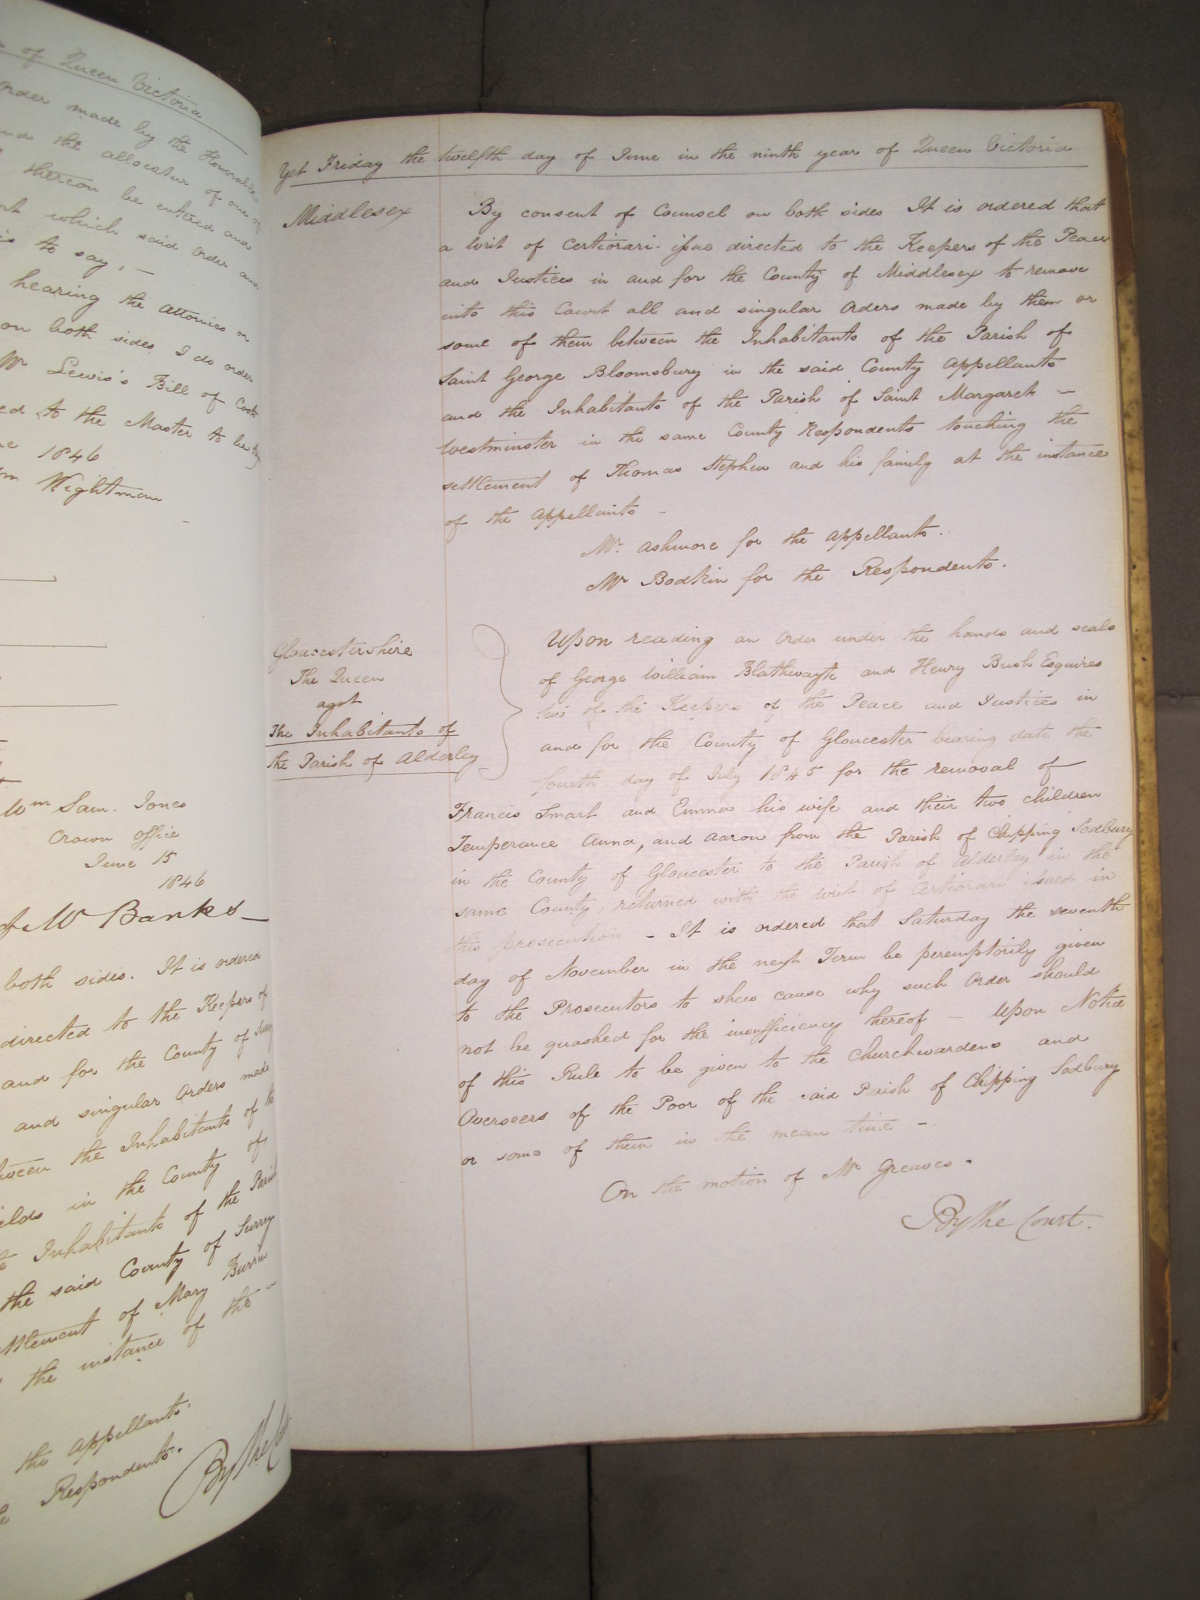 of Queen Victoria
Order made by the Honorable
and the allocatur of one of
thereon be entered and
which said Order and
is to say, —
hearing the attornies on
on both sides I do order
Mr Lewis's Bill of Costs
ed to the Master to be
1846
Wm Wightman
Wm Sam. Jones
Crown Office
June 15
1846
of Mr Banks —
both sides. It is ordered
directed to the Keepers of
and for the County of Surrey
and singular Orders made
between the Inhabitants of the
in the County of
Inhabitants of the Parish
the said County of Surrey
settlement of Mary
the instance of the —
the Appellants.
Respondents.
By the Court
Yet Friday the twelfth day of June in the ninth year of Queen Victoria
Middlesex
By consent of Counsel on both sides It is ordered that
a Writ of Certiorari issue directed to the Keepers of the Peace
and Justices in and for the County of Middlesex to remove
into this Court all and singular Orders made by them or
some of them between the Inhabitants of the Parish of
Saint George Bloomsbury in the said County Appellants
and the Inhabitants of the Parish of Saint Margaret —
Westminster in the same County Respondents touching the
settlement of Thomas Stephen and his family at the instance
of the Appellants —
Mr. Ashmore for the Appellants.
Mr Bodkin for the Respondents.
Gloucestershire
The Queen
agst
The Inhabitants of
the Parish of Alderley
Upon reading an Order under the hands and seals
of George William Blathwayt and Henry Bush Esquires
two of the Keepers of the Peace and Justices in
and for the County of Gloucester bearing date the
fourth day of July 1845 for the removal of
Francis Smart and Emma his wife and their two children
Temperance Anna, and Aaron from the Parish of Chipping Sodbury
in the County of Gloucester to the Parish of Alderley in the
same County, returned with the Writ of Certiorari issued in
this prosecution — It is ordered that Saturday the seventh
day of November in the next Term be peremptorily given
to the Prosecutors to shew cause why such Order should
not be quashed for the insufficiency thereof — Upon Notice
of this Rule to be given to the Churchwardens and
Overseers of the Poor of the said Parish of Chipping Sodbury
or some of them in the mean time —
On the motion of Mr Greaves.
By the Court.